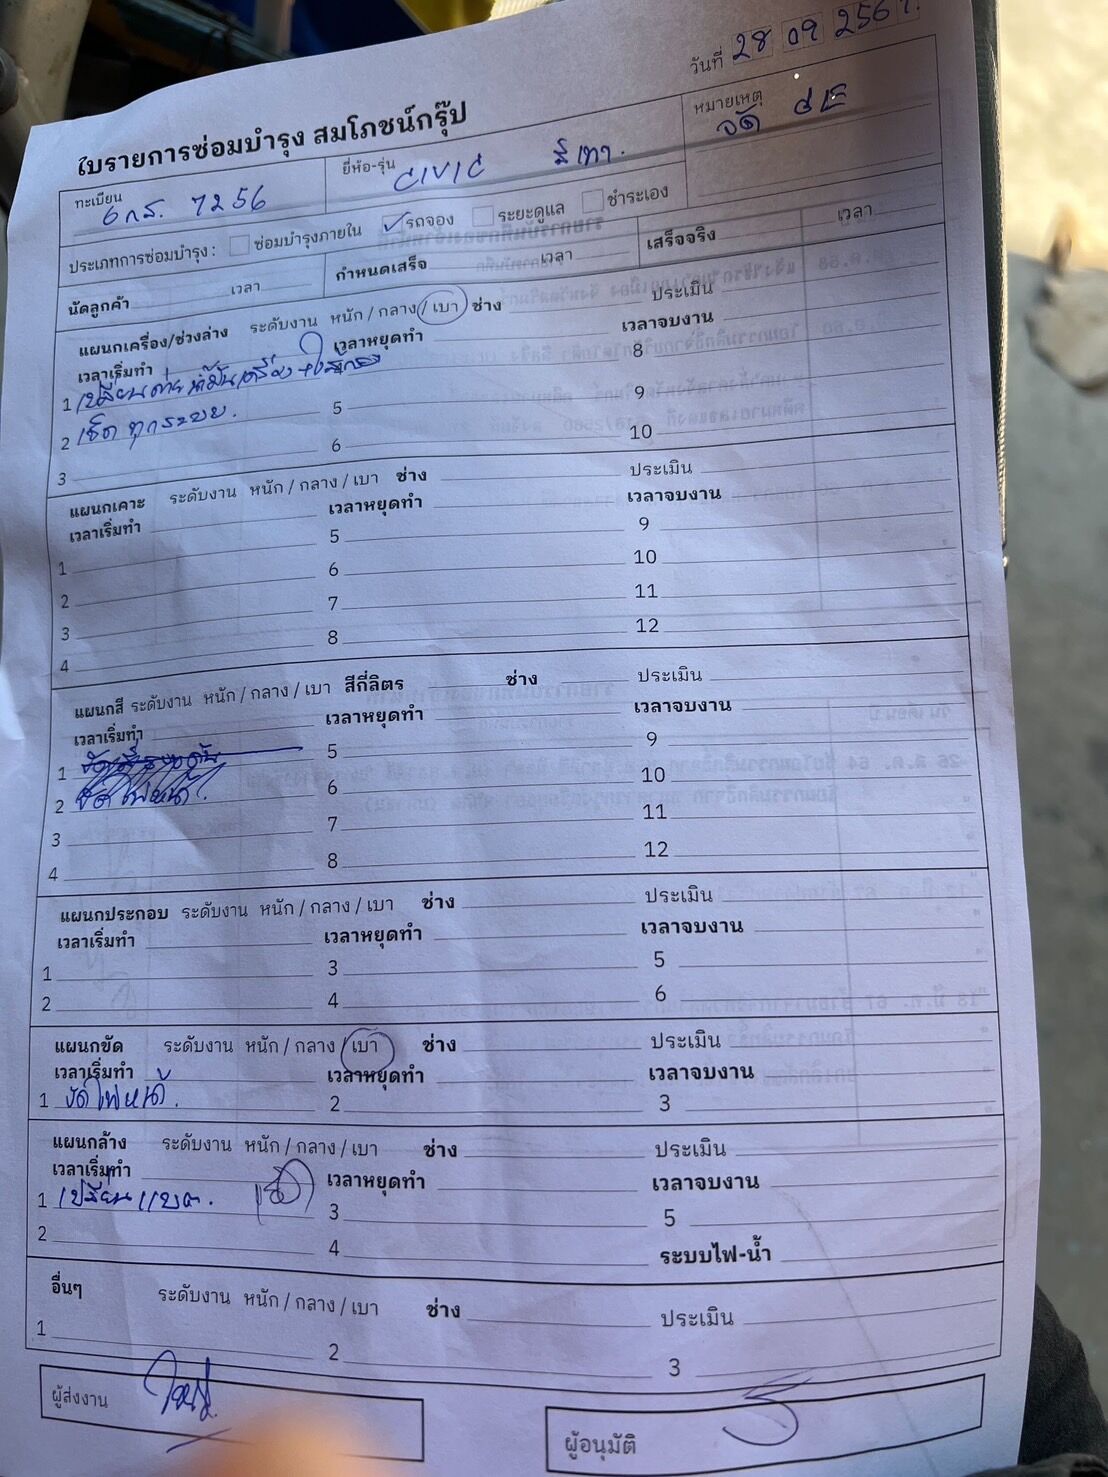 วันที่ 28 09 2567.
ใบรายการซ่อมบำรุง สมโภชน์กรุ๊ป
ทะเบียน 6กส. 7256 ยี่ห้อ-รุ่น CIVIC สีเทา. หมายเหตุ
ประเภทการซ่อมบำรุง : ซ่อมบำรุงภายใน ✓ รถจอง ระยะดูแล ชำระเอง
นัดลูกค้า เวลา กำหนดเสร็จ เวลา เสร็จจริง เวลา
แผนกเครื่อง/ช่วงล่าง ระดับงาน หนัก / กลาง / เบา ช่าง ประเมิน
เวลาเริ่มทำ เวลาหยุดทำ เวลาจบงาน
1 เปลี่ยนถ่ายน้ำมันเครื่อง ไส้กรอง 8
2 เช็ค ทุกระบบ. 5 9
3 6 10
แผนกเคาะ ระดับงาน หนัก / กลาง / เบา ช่าง ประเมิน
เวลาเริ่มทำ เวลาหยุดทำ เวลาจบงาน
1 5 9
2 6 10
3 7 11
4 8 12
แผนกสี ระดับงาน หนัก / กลาง / เบา สีกี่ลิตร ช่าง ประเมิน
เวลาเริ่มทำ เวลาหยุดทำ เวลาจบงาน
1 5 9
2 ขัดไฟหน้า. 6 10
3 7 11
4 8 12
แผนกประกอบ ระดับงาน หนัก / กลาง / เบา ช่าง ประเมิน
เวลาเริ่มทำ เวลาหยุดทำ เวลาจบงาน
1 3 5
2 4 6
แผนกขัด ระดับงาน หนัก / กลาง / เบา ช่าง ประเมิน
เวลาเริ่มทำ เวลาหยุดทำ เวลาจบงาน
1 ขัดไฟหน้า. 2 3
แผนกล้าง ระดับงาน หนัก / กลาง / เบา ช่าง ประเมิน
เวลาเริ่มทำ เวลาหยุดทำ เวลาจบงาน
1 เปลี่ยนแบต. 3 5
2 4 ระบบไฟ-น้ำ
อื่นๆ ระดับงาน หนัก / กลาง / เบา ช่าง ประเมิน
1 2 3
ผู้ส่งงาน ผู้อนุมัติ